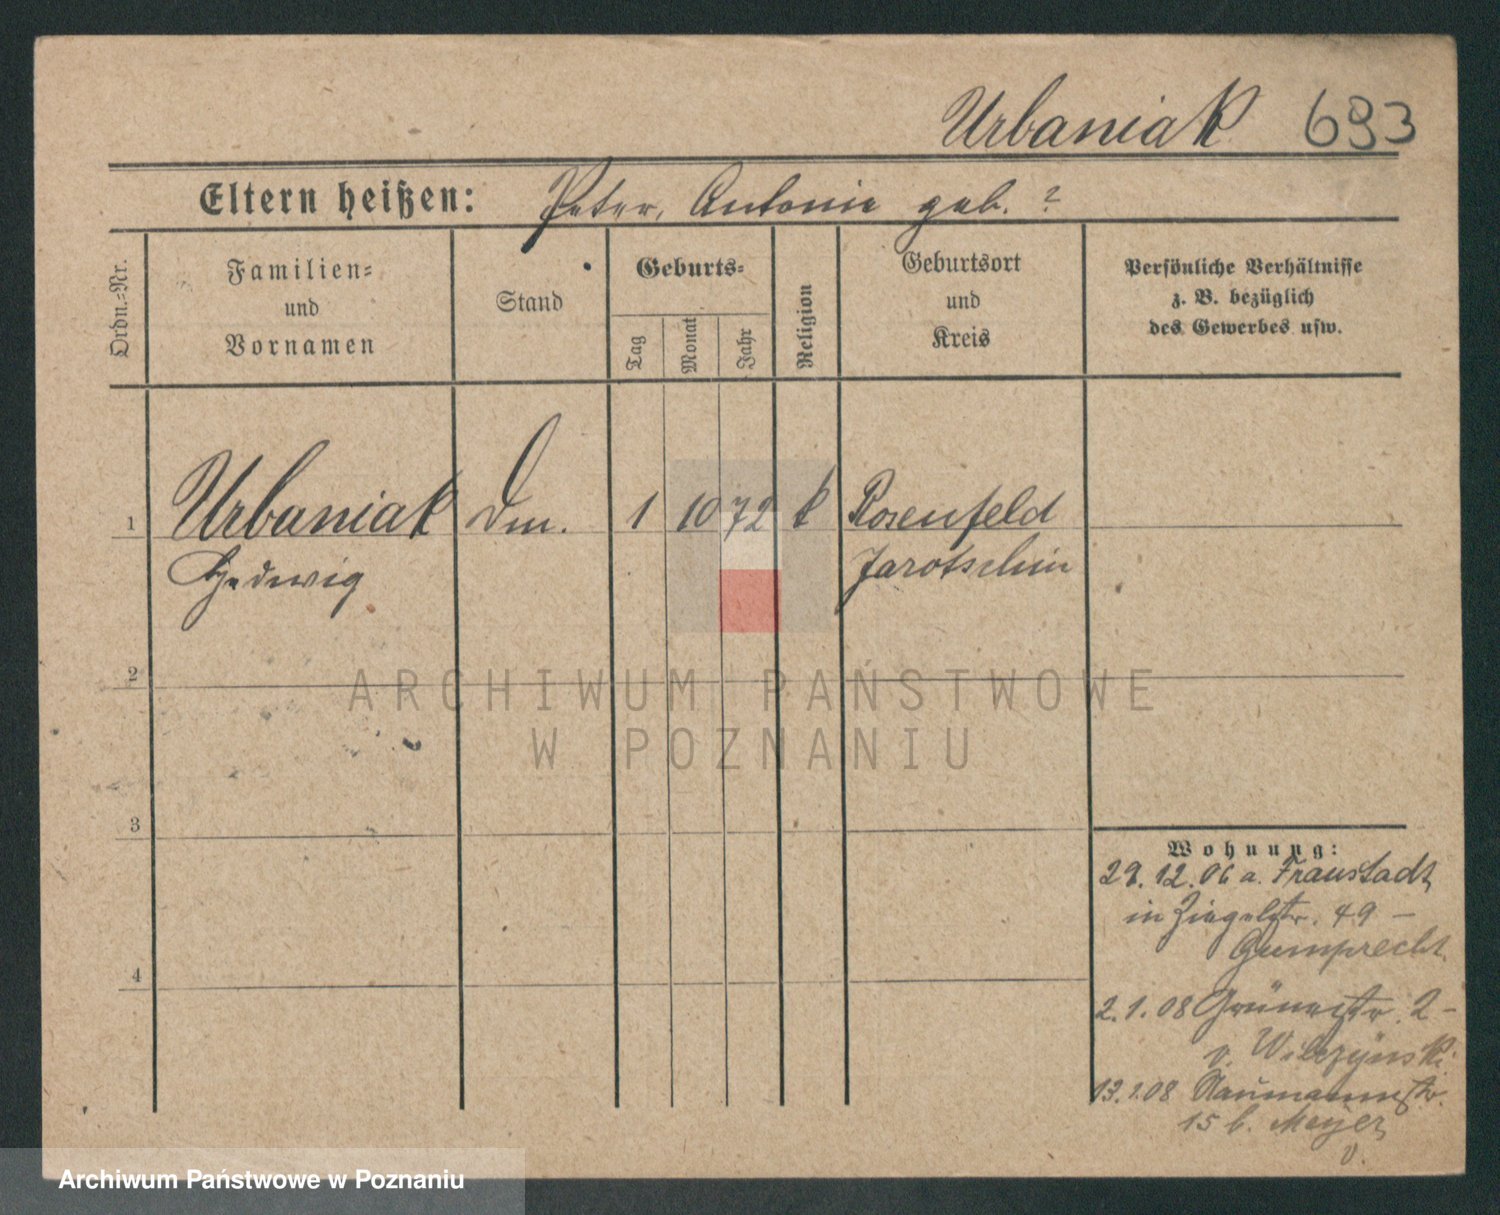 Urbaniak 693
Eltern heißen: Peter, Antonie geb. ?
Ordn.-Nr.
Familien-
und
Vornamen
Stand
Geburts-
Tag
Monat
Jahr
Religion
Geburtsort
und
Kreis
Persönliche Verhältnisse
z. B. bezüglich
des Gewerbes usw.
1 Urbaniak Dm. 1 10 72 k Rosenfeld
Hedwig Jarotschin
2
3
4
Wohnung:
29.12.06 a. Fraustadt
in Ziegelstr. 49 –
Gumprecht
2.1.08 Grünestr. 2 –
v. Wilczynski
13.1.08 Naumannstr.
15 b. Meyer
v.
ARCHIWUM PAŃSTWOWE
W POZNANIU
Archiwum Państwowe w Poznaniu